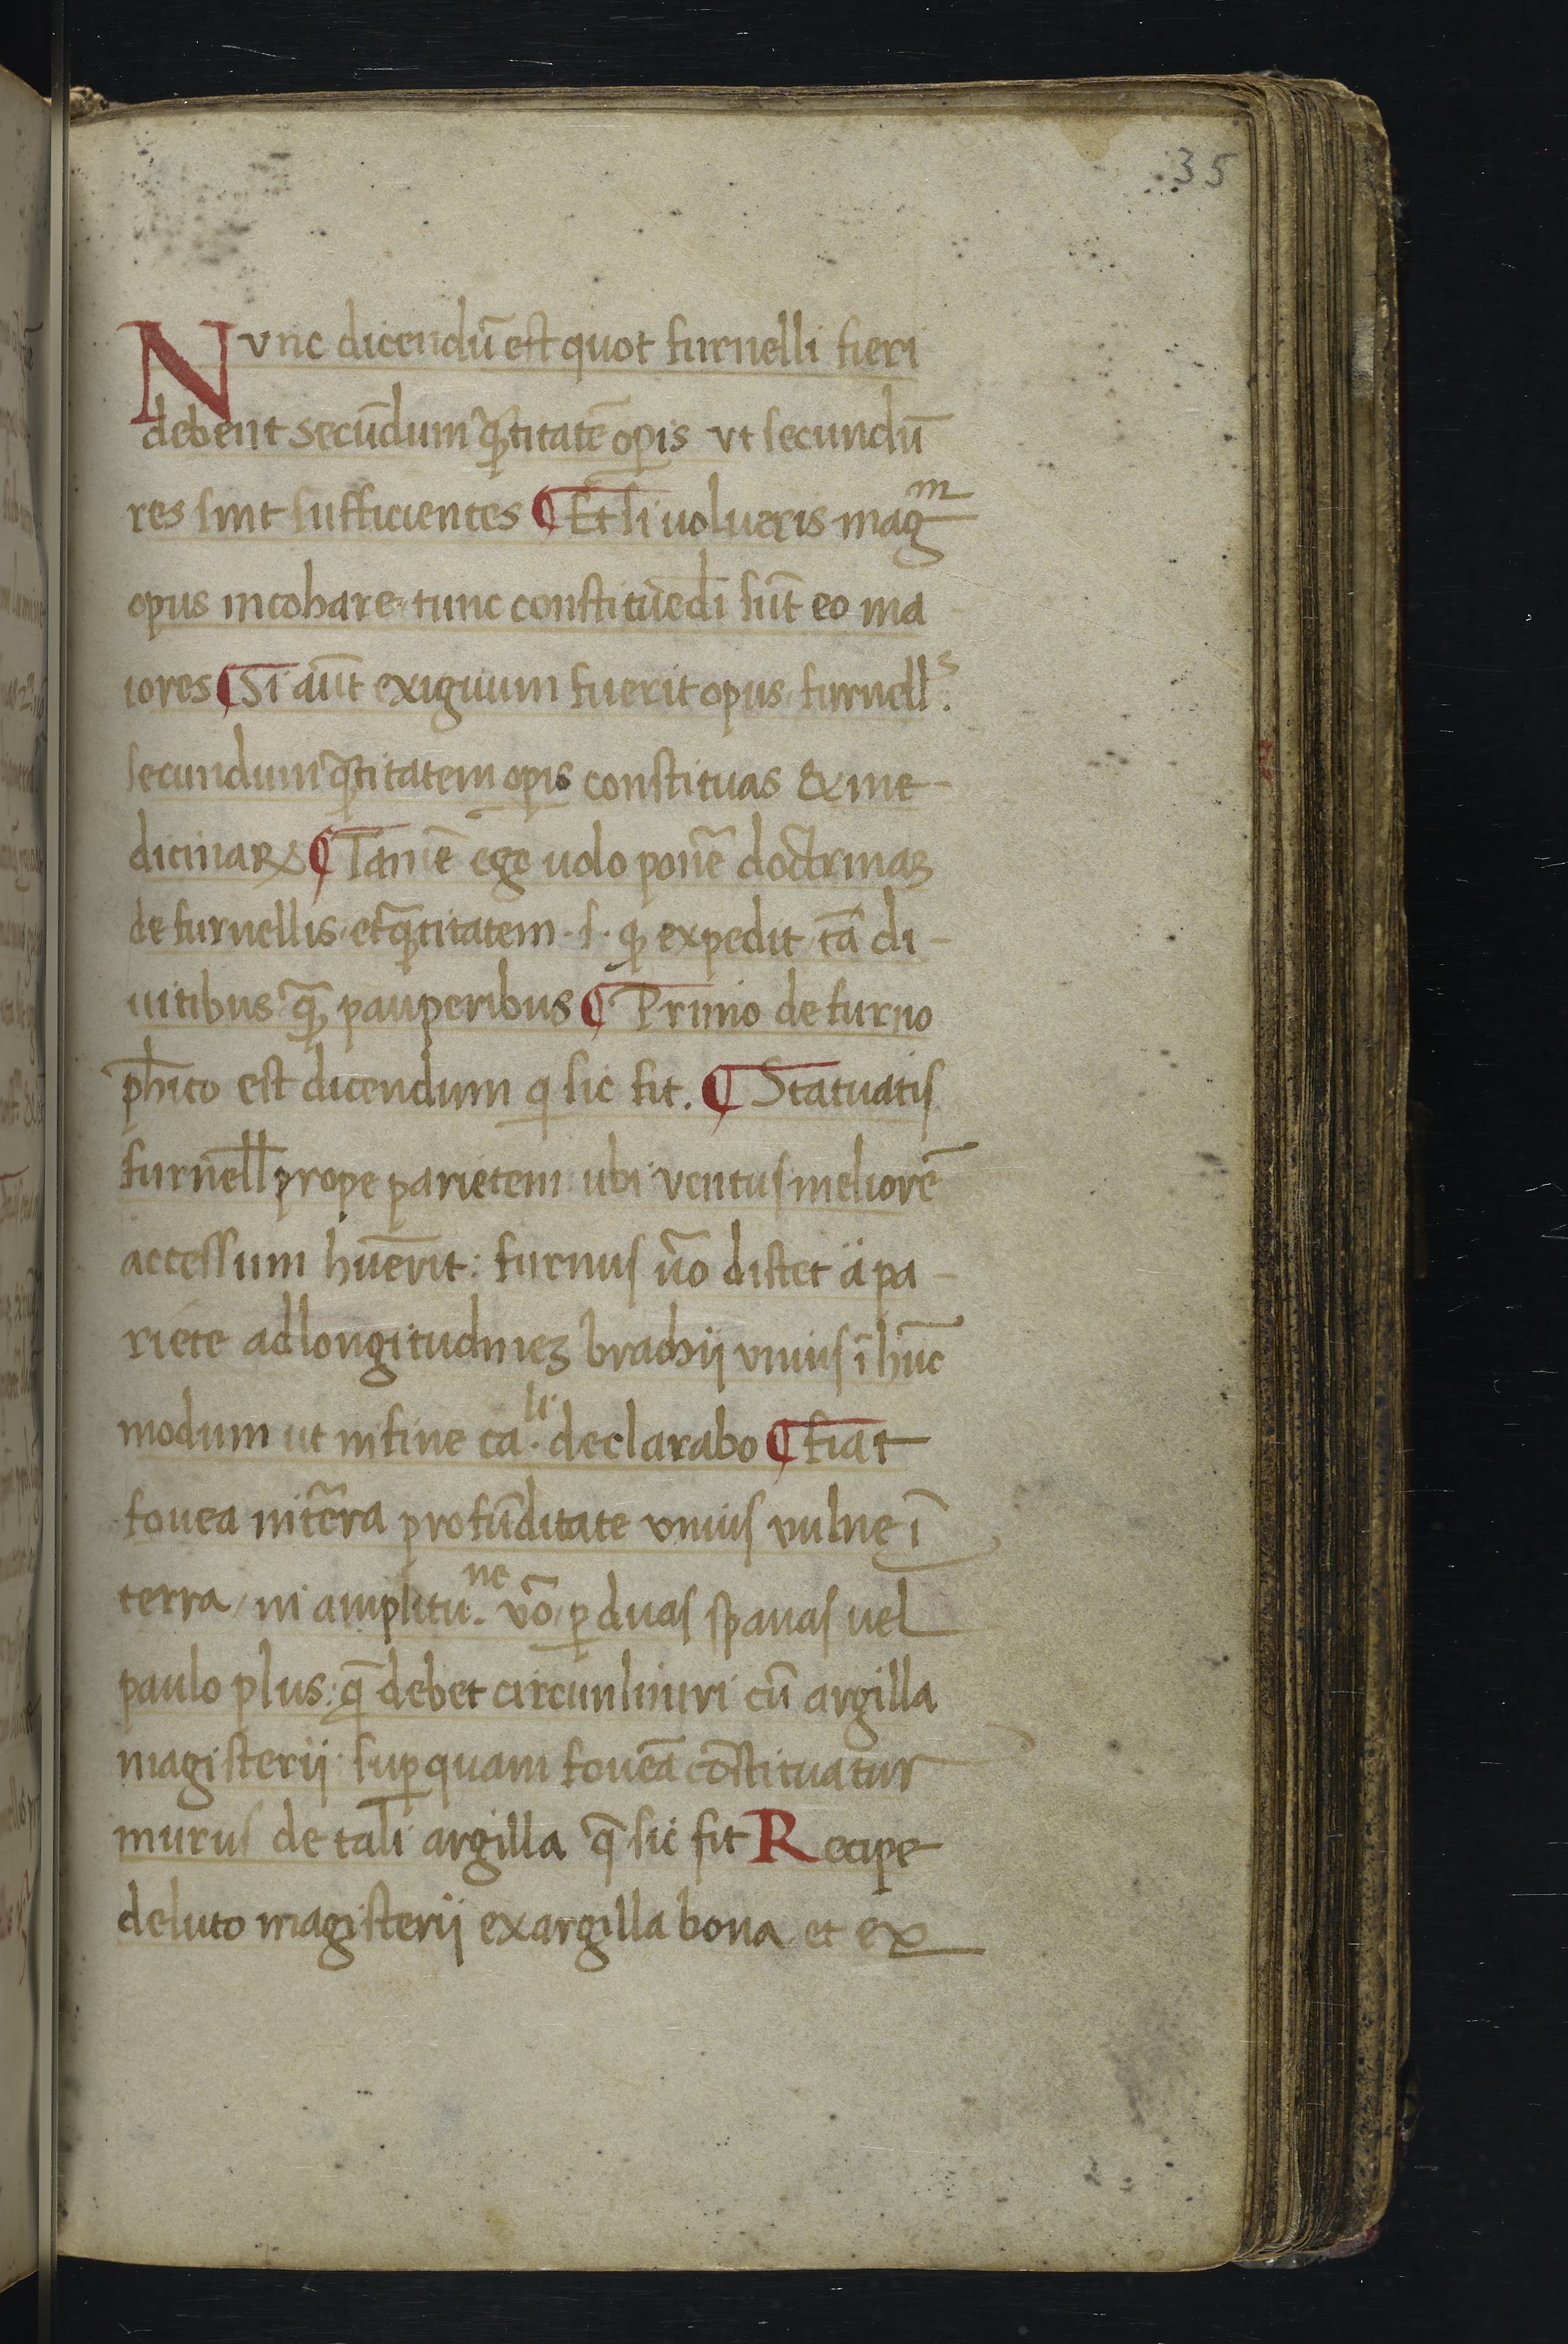 35
Nvnc dicendū est quot furnelli fieri
debent secūdum q̄titatē op̄is vt secundū
res sint sufficientes ¶ Et si uolueris magᵐ
opus incohare tunc constituēdi sūt eo ma
iores ¶ Si aūt exiguum fuerit opus furnell.ˢ
secundum q̄titatem op̄is constituas & me-
dicinaꝝ ¶ Tamē ego uolo ponē̃ doctrinaꝫ
de furnellis et q̄titatem .s. ꝙ expedit tā di-
uitibus q̄ꝫ pauperibus ¶ Primo de furno
ph̄ico est dicendum q sic fit. ¶ Statuatis
furnell̄ prope parietem ubi ventus meliorē
accessum hūerit: furnus ūo distet a pa-
riete ad longitudineꝫ brachij vnius ī hūc
modum ut in fine ca.ˡⁱ declarabo ¶ fiat
fouea in tēra profūditate vnius vulne ī
terra in amplitu.ⁿᵉ vō ꝑ duas spanas uel
paulo plus: q̄ debet circunliniri cū argilla
magisterij sup̱ quam foueā cōstituatur
murus de tali argilla q̄ sic fit Recipe
de luto magisterij ex argilla bona et ex